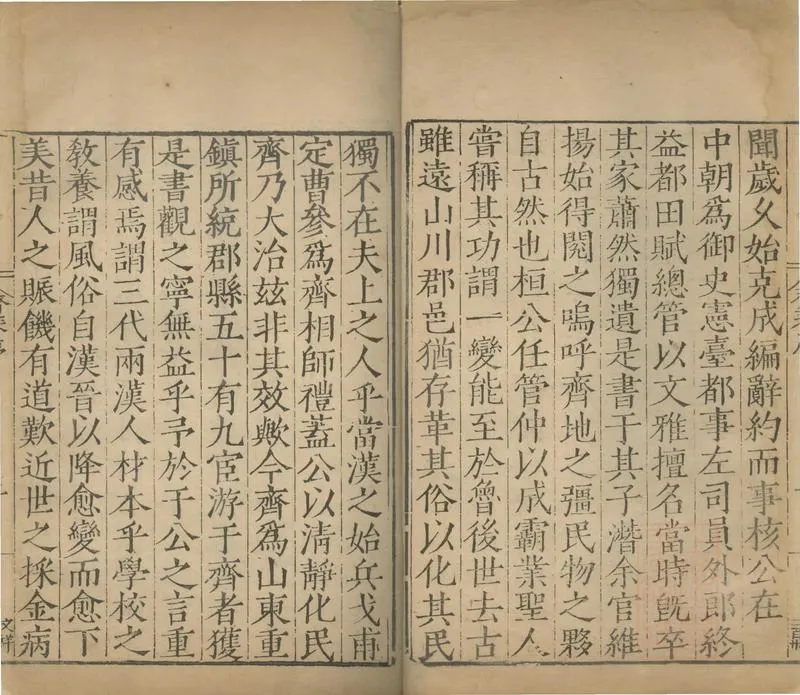 聞歲久始克成編辭約而事核公在
中朝爲御史憲臺都事左司員外郎終
益都田賦總管以文雅擅名當時旣卒
其家蕭然獨遺是書于其子潛余官維
揚始得閱之嗚呼齊地之彊民物之夥
自古然也桓公任管仲以成霸業聖人
嘗稱其功謂一變能至於魯後世去古
雖遠山川郡邑猶存革其俗以化其民
獨不在夫上之人乎當漢之始兵戈甫
定曹參爲齊相師禮蓋公以淸靜化民
齊乃大治玆非其效歟今齊爲山東重
鎮所統郡縣五十有九宦游于齊者獲
是書觀之寧無益乎予於于公之言重
有感焉謂三代兩漢人材本乎學校之
敎養謂風俗自漢晉以降愈變而愈下
美昔人之賑饑有道歎近世之採金病